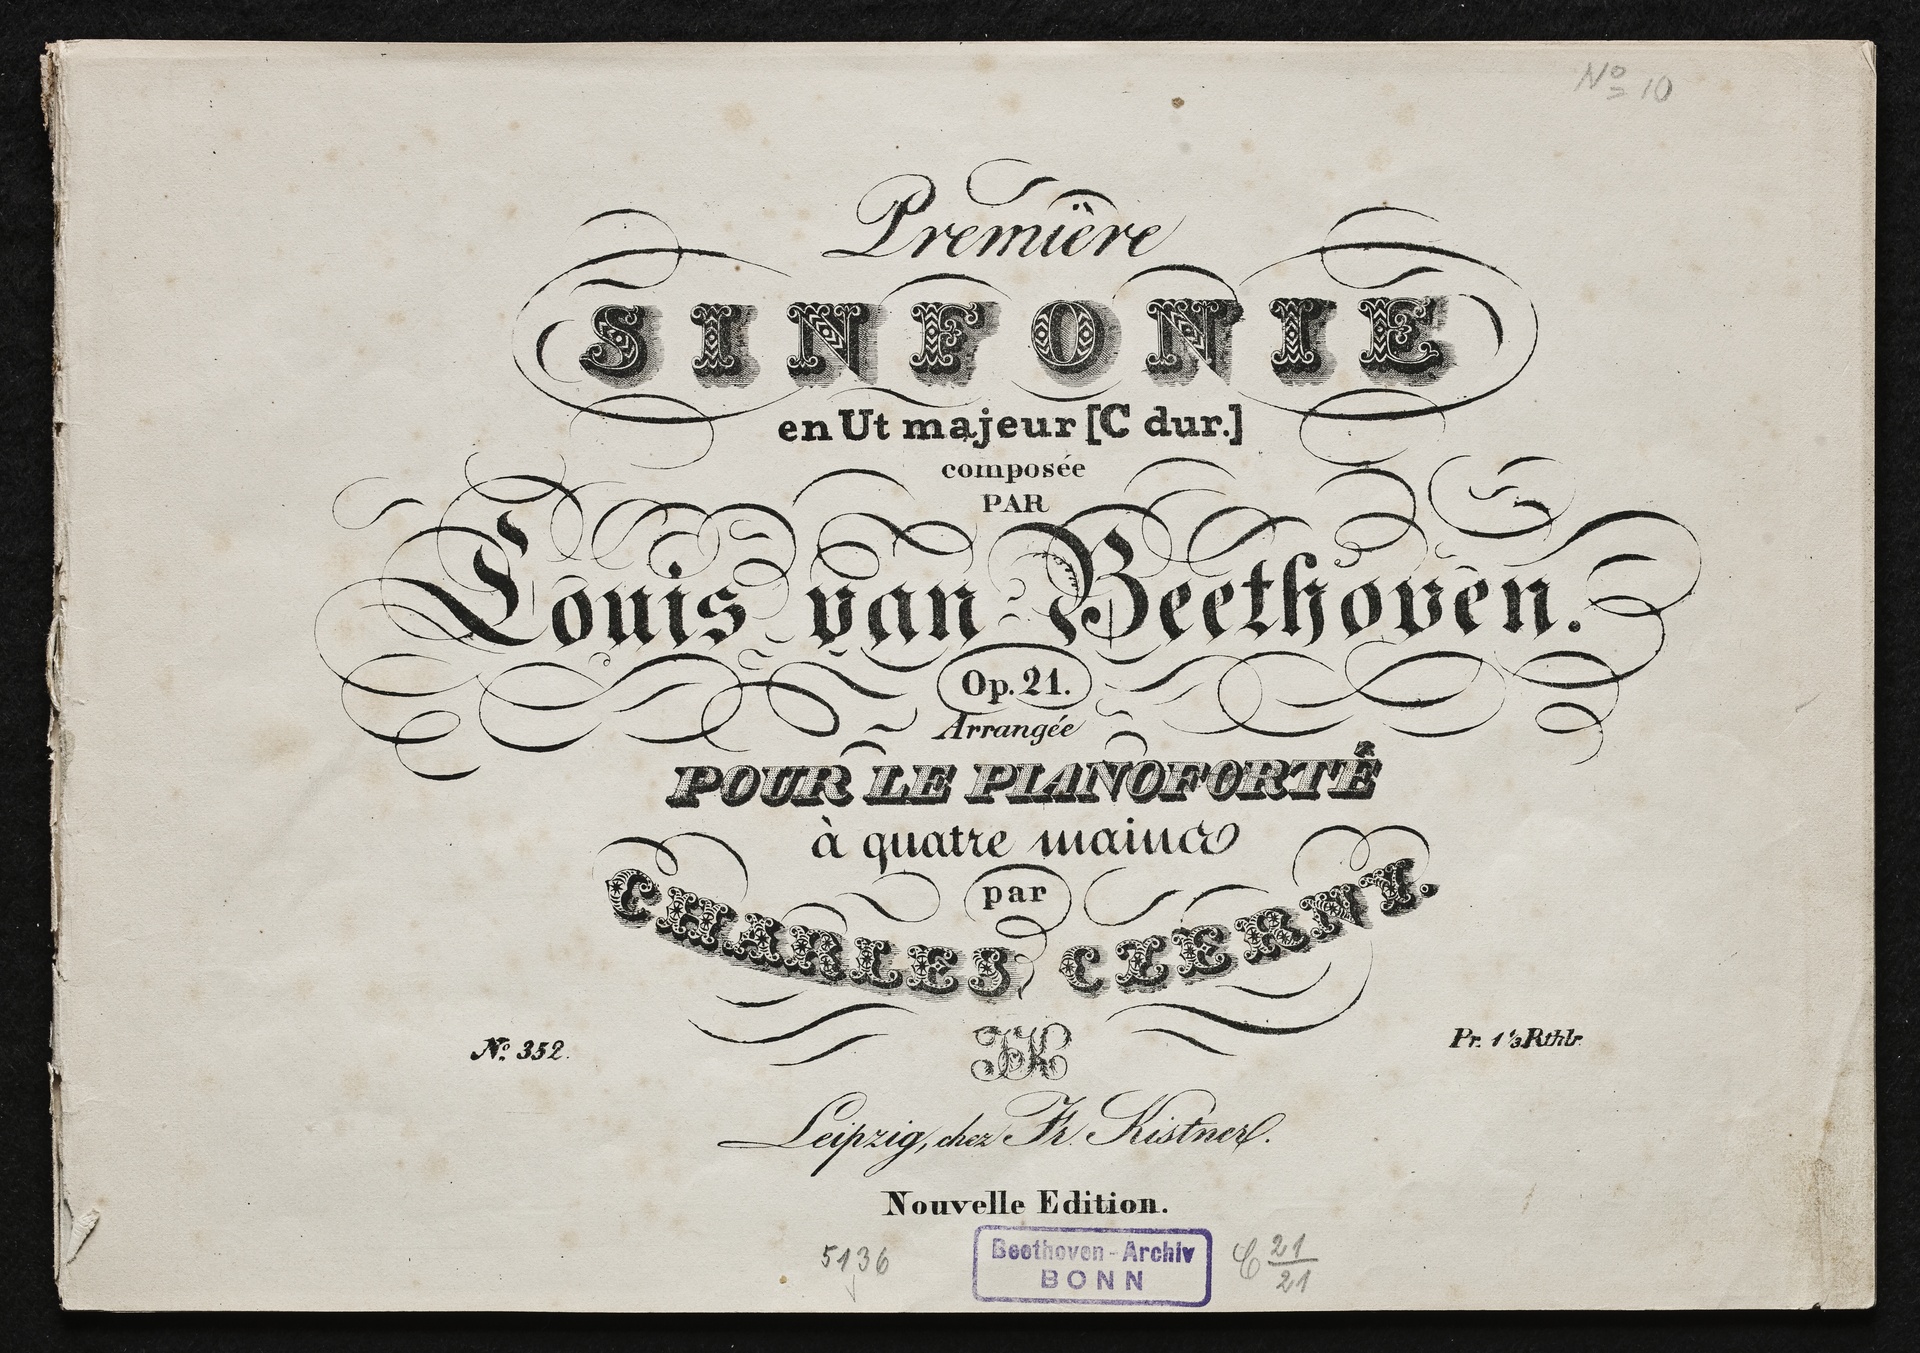 No 10
Première
SINFONIE
en Ut majeur [C dur.]
composée
PAR
Louis van Beethoven.
Op. 21.
Arrangée
POUR LE PIANOFORTÉ
à quatre mains
par
CHARLES CZERNY.
No. 352.
FK
Pr. 1 1/3 Rthlr.
Leipzig, chez Fr. Kistner.
Nouvelle Edition.
5136
Beethoven-Archiv
BONN
C 21/21